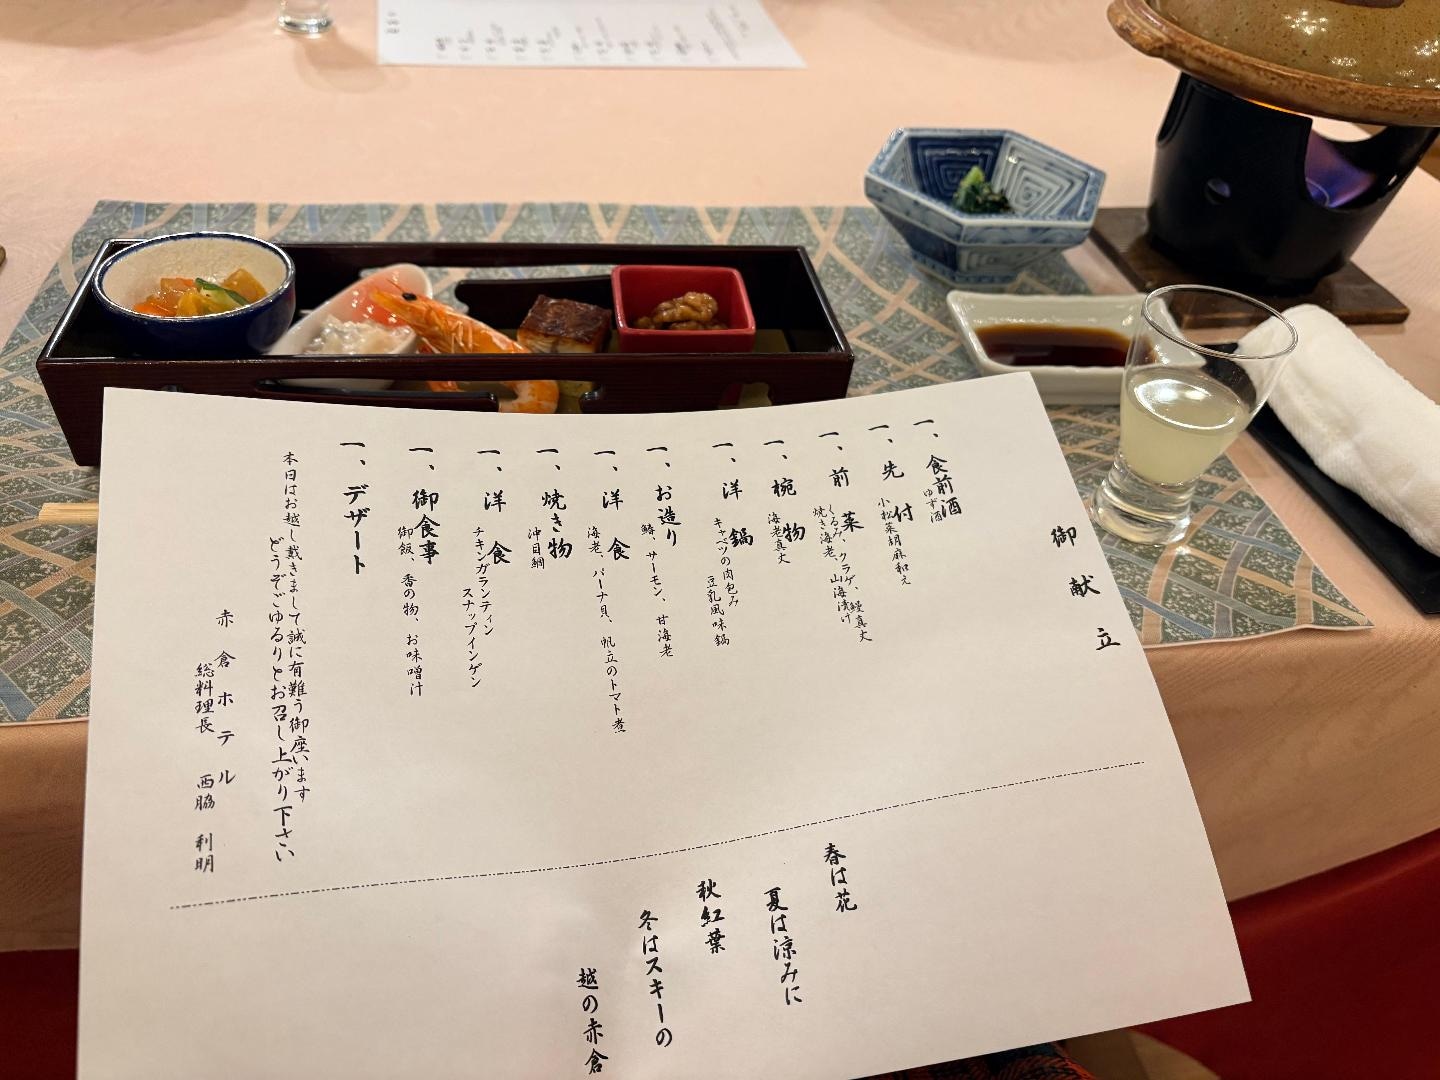 御献立
一、食前酒
ゆず酒
一、先付
小松菜胡麻和え
一、前菜
くるみ、クラゲ、鰻真丈
焼き海老、山海漬け
一、椀物
海老真丈
一、洋鍋
キャベツの肉包み
豆乳風味鍋
一、お造り
鰤、サーモン、甘海老
一、洋食
海老、パーナ貝、帆立のトマト煮
一、焼き物
沖目鯛
一、洋食
チキンガランティン
スナップインゲン
一、御食事
御飯、香の物、お味噌汁
一、デザート
本日はお越し戴きまして誠に有難う御座います
どうぞごゆるりとお召し上がり下さい
赤倉ホテル
総料理長 西脇 利明
春は花
夏は涼みに
秋紅葉
冬はスキーの
越の赤倉